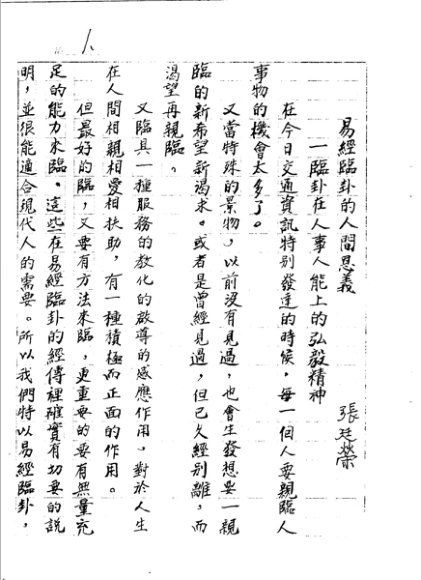 易經臨卦的人間思義
一臨卦在人事人能上的弘毅精神
張廷榮
在今日交通資訊特別發達的時候，每一個人要親臨人
事物的機會太多了。
又當特殊的景物，以前沒有見過，也會生發想要一親
臨的新希望新渴求。或者是曾經見過，但已久經別離，而
渴望再親臨。
又臨具一種服務的教化的啟導的感應作用，對於人生
在人間相親相愛相扶助，有一種積極而正面的作用。
但最好的臨，又要有方法來臨，更重要的要有無量充
足的能力來臨。這些在易經臨卦的經傳裡確實有切要的說
明，並很能適合現代人的需要。所以我們特以易經臨卦，